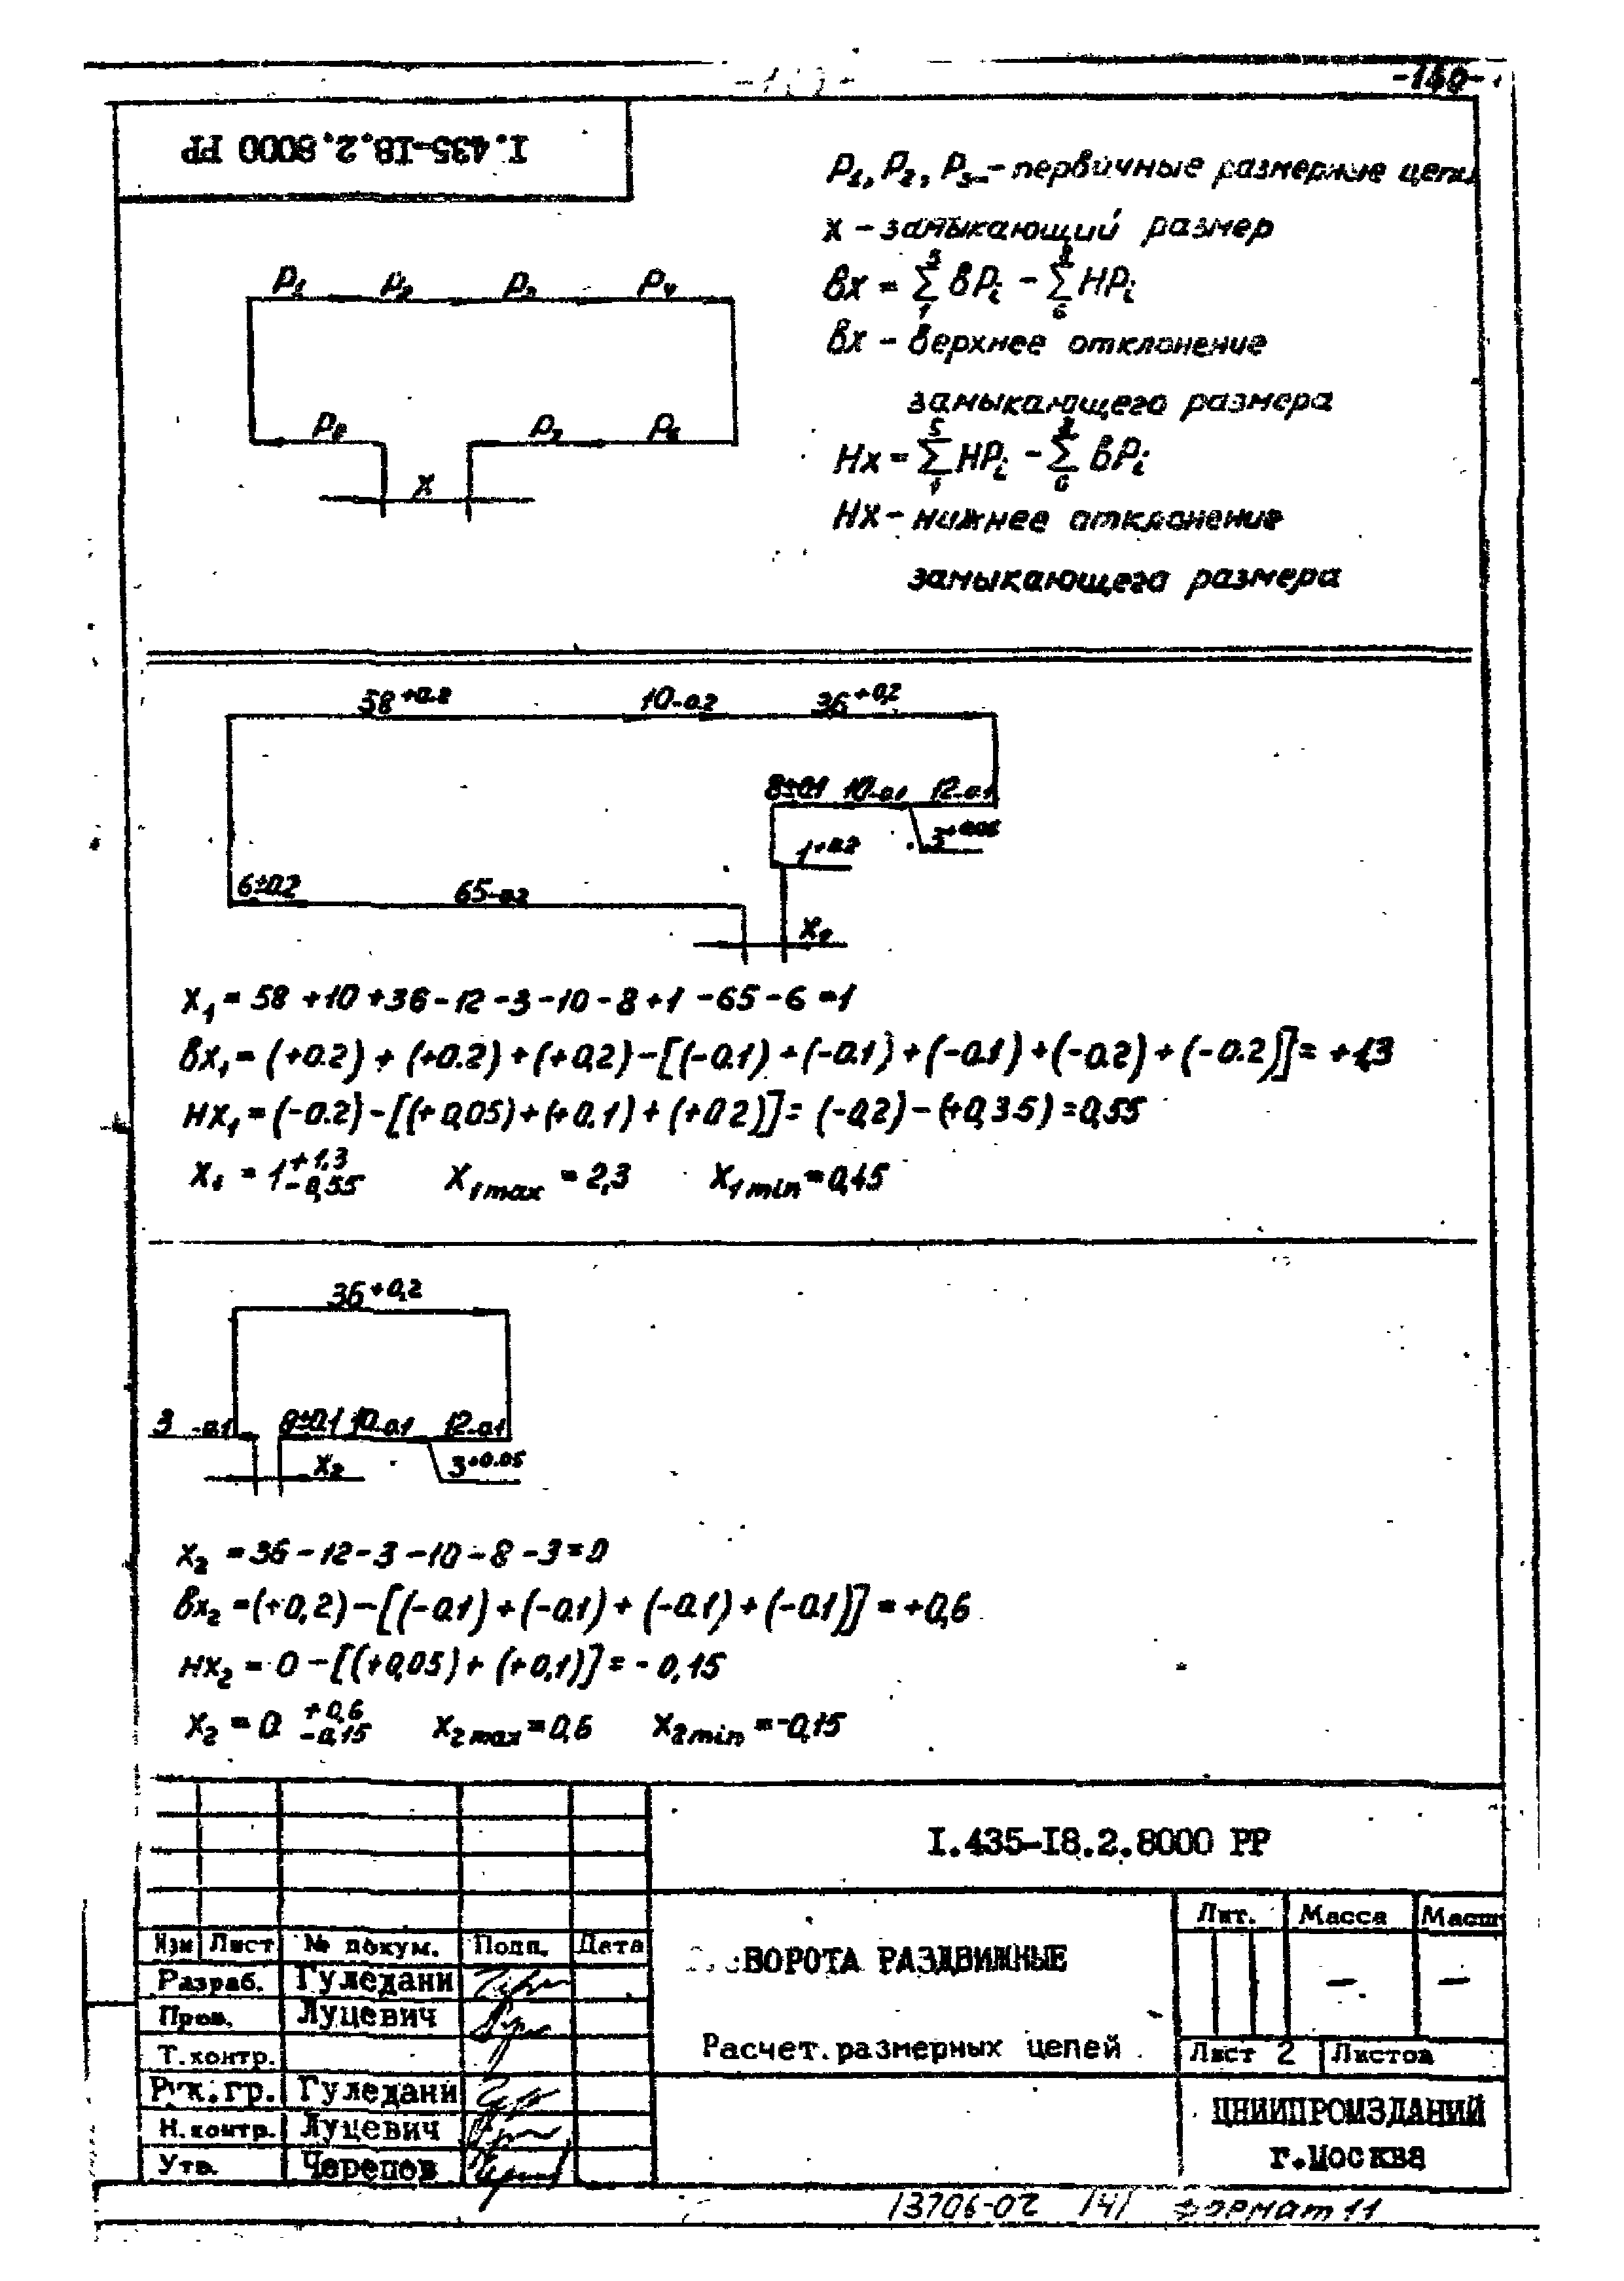 -140-
I.435-I8.2.8000 РР
P₁, P₂, P₃ - первичные размерные цепи
x - замыкающий размер
Bx = Σ BPᵢ - Σ HPᵢ
Bx - верхнее отклонение
замыкающего размера
Hx = Σ HPᵢ - Σ BPᵢ
Hx - нижнее отклонение
замыкающего размера
P₁ P₂ P₃ P₄
P₈ P₇ P₆
x
58+0.2 10-0.2 36+0,2
8±0.1 10-0.1 12-0.1
1+0.2 3+0.05
6±0.2 65-0.2
X₁
X₁ = 58 + 10 + 36 - 12 - 3 - 10 - 8 + 1 - 65 - 6 = 1
BX₁ = (+0.2) + (+0.2) + (+0,2) - [(-0.1) + (-0.1) + (-0.1) + (-0.2) + (-0.2)] = +1,3
HX₁ = (-0.2) - [(+0,05) + (+0.1) + (+0.2)] = (-0,2) - (+0,35) = 0,55
X₁ = 1 +1,3 -0,55 X₁max = 2,3 X₁min = 0,45
36+0,2
3 -0.1 8±0.1 10-0.1 12-0.1
X₂ 3+0.05
X₂ = 36 - 12 - 3 - 10 - 8 - 3 = 0
BX₂ = (+0,2) - [(-0.1) + (-0.1) + (-0.1) + (-0.1)] = +0,6
HX₂ = 0 - [(+0,05) + (+0,1)] = -0,15
X₂ = 0 +0,6 -0,15 X₂max = 0,6 X₂min = -0,15
I.435-I8.2.8000 РР
Изм Лист № докум. Подп. Дата
Разраб. Гуледани
Пров. Луцевич
Т.контр.
Рук.гр. Гуледани
Н.контр. Луцевич
Утв. Черепов
ВОРОТА РАЗДВИЖНЫЕ
Расчет размерных цепей
Лит. Масса Масш
- -
Лист 2 Листов
ЦНИИПРОМЗДАНИЙ
г.Москва
13706-02 141 Формат 11